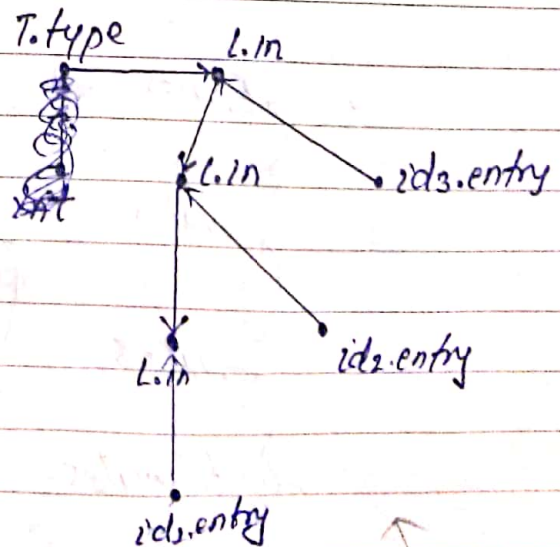 T.type
L.in
L.in
id3.entry
L.in
id2.entry
id1.entry